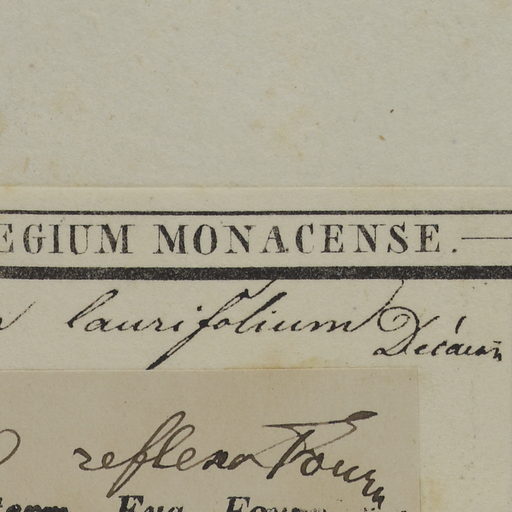 EGIUM MONACENSE.
laurifolium Decaisn
reflexa Fourn
term. Eug. Fourn